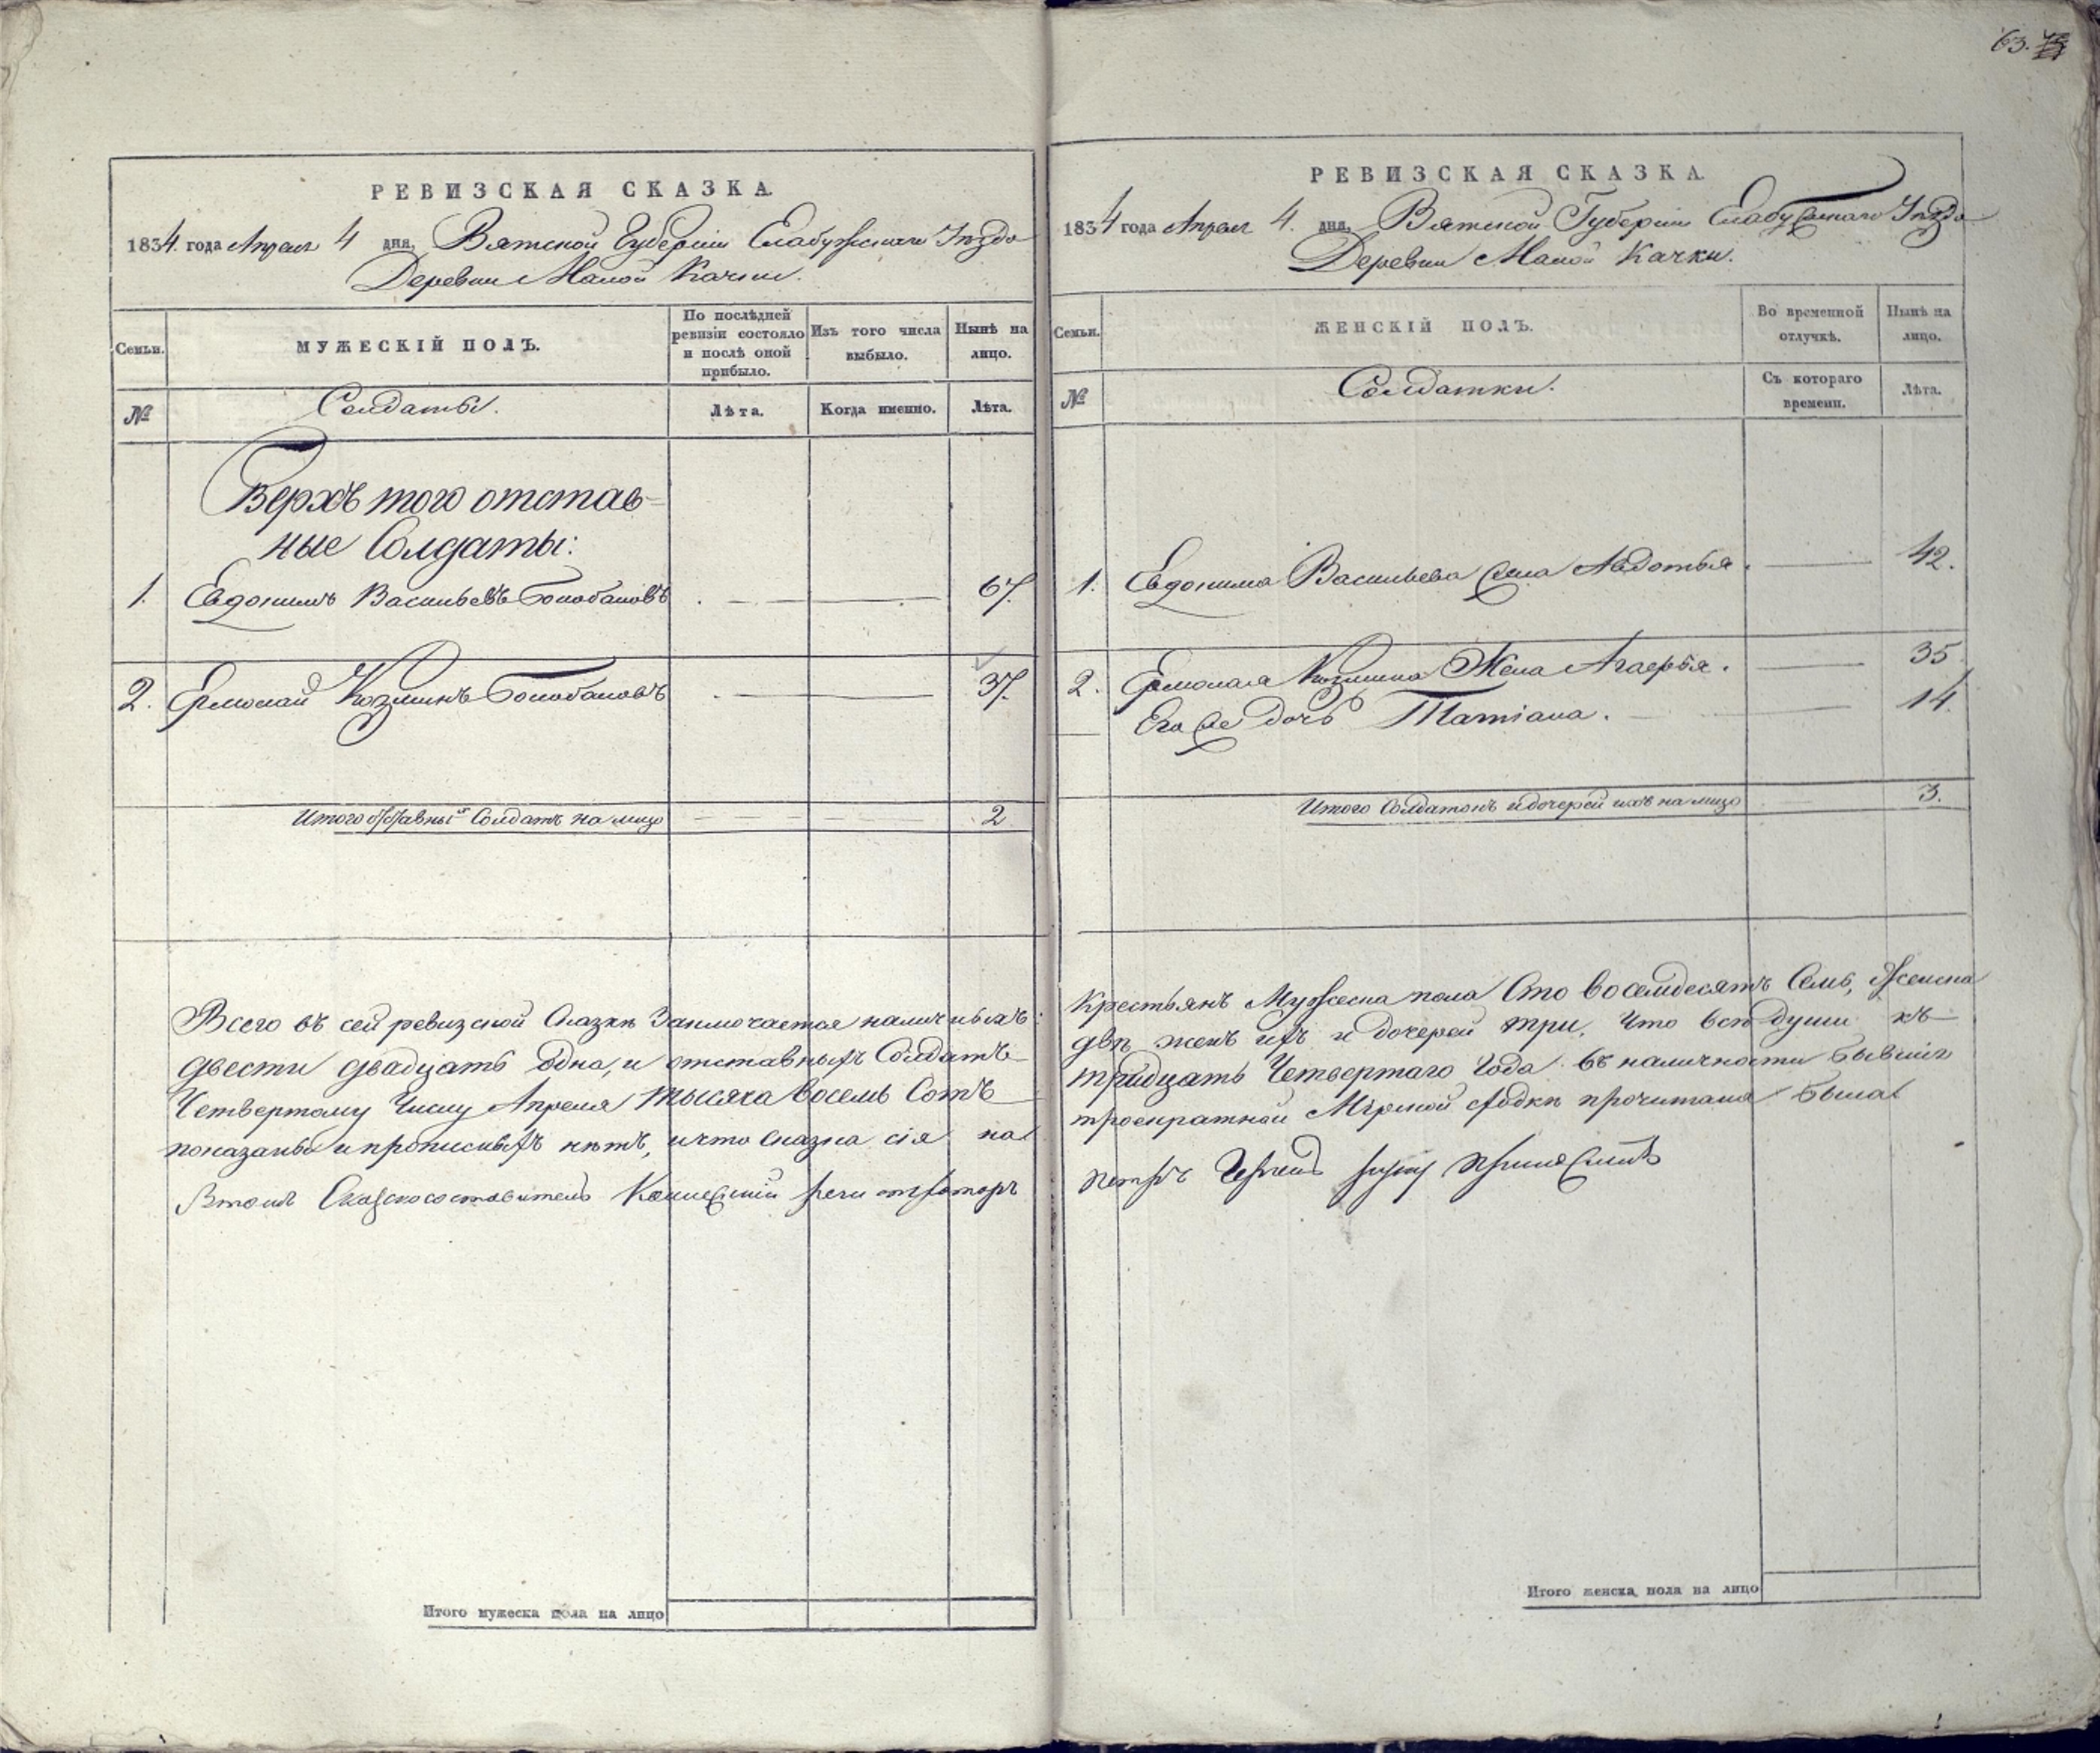 63.
РЕВИЗСКАЯ СКАЗКА.
1834. года Апреля 4 дня, Вятской Губерніи Елабужскаго Уѣзда
Деревни Малой Качки.
Семьи.
МУЖЕСКІЙ ПОЛЪ.
По послѣдней ревизіи состояло и послѣ оной прибыло.
Изъ того числа выбыло.
Нынѣ на лицо.
№
Солдаты.
Лѣта.
Когда именно.
Лѣта.
Верхъ того отстав-
ные Солдаты:
1. Евдокимъ Васильевъ Болобановъ 67.
2. Ермолай Козминъ Болобановъ 37.
Итого отставныхъ Солдатъ на лицо 2
Всего въ сей ревизской Сказкѣ Заключается наличныхъ:
двести двадцать одна, и отставныхъ Солдатъ
Четвертому Числу Апреля тысяча восемь Сотъ
показаны и прописныхъ нѣтъ, и что сказка сія на
Втомъ Сказкосоставитель
Итого мужеска пола на лицо
РЕВИЗСКАЯ СКАЗКА.
1834 года Апреля 4. дня, Вятской Губерніи Елабужскаго Уѣзда
Деревни Малой Качки.
Семьи.
ЖЕНСКІЙ ПОЛЪ.
Во временной отлучкѣ.
Нынѣ на лицо.
№
Солдатки.
Съ котораго времени.
Лѣта.
1. Евдокима Васильева жена Авдотья. 42.
2. Ермолая Козмина Жена Агафья. 35
Его же дочь Татіана. 14.
Итого Солдатокъ и дочерей ихъ на лицо 3.
Крестьянъ Мужеска пола Сто восемдесятъ Семь, Женска
двѣ женъ ихъ и дочерей три, Что всѣ души къ
тридцать Четвертаго Года въ наличности бывшія
троекратной Мірской сходкѣ прочитана была
руку приложилъ
Итого женска пола на лицо